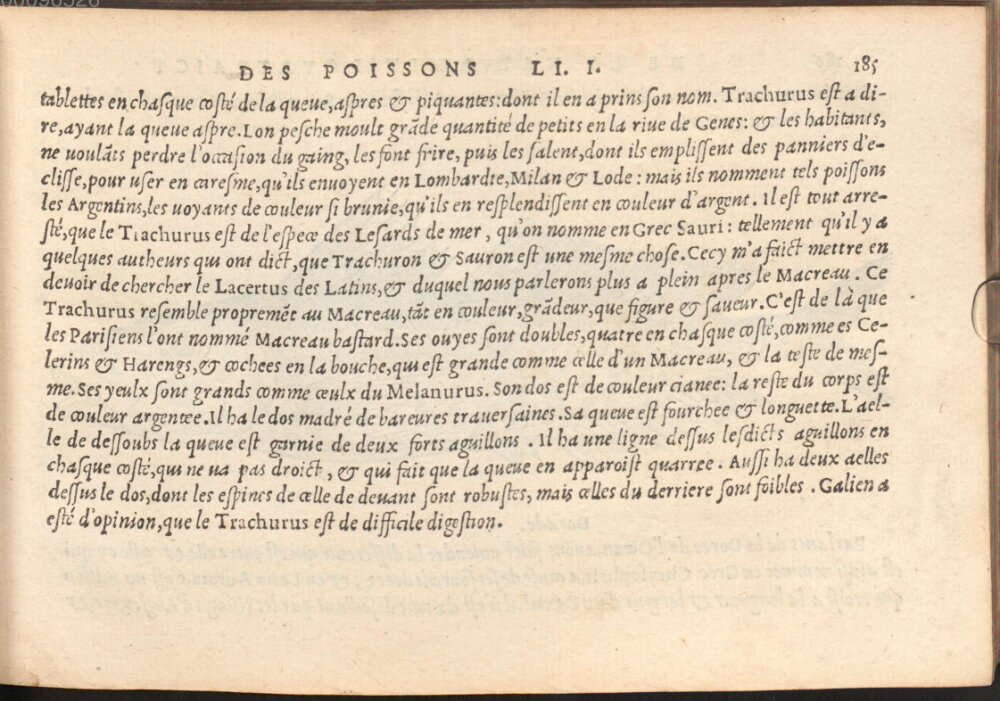 DES POISSONS LI. I. 185
tablettes en chasque costé de la queue, aspres & piquantes: dont il en a prins son nom. Trachurus est a di-
re, ayant la queue aspre. Lon pesche moult grãde quantité de petits en la riue de Genes: & les habitants,
ne uoulãts perdre l'occasion du gaing, les font frire, puis les salent, dont ils emplissent des panniers d'e-
clisse, pour user en caresme, qu'ils enuoyent en Lombardie, Milan & Lode: mais ils nomment tels poissons
les Argentins, les uoyants de couleur si brunie, qu'ils en resplendissent en couleur d'argent. Il est tout arre-
sté, que le Trachurus est de l'espece des Lesards de mer, qu'on nomme en Grec Sauri: tellement qu'il y a
quelques autheurs qui ont dict, que Trachuron & Sauron est une mesme chose. Cecy m'a faict mettre en
deuoir de chercher le Lacertus des Latins, & duquel nous parlerons plus a plein apres le Macreau. Ce
Trachurus resemble propremẽt au Macreau, tãt en couleur, grãdeur, que figure & saueur. C'est de là que
les Parisiens l'ont nommé Macreau bastard. Ses ouyes sont doubles, quatre en chasque costé, comme es Ce-
lerins & Harengs, & cochees en la bouche, qui est grande comme celle d'un Macreau, & la teste de mes-
me. Ses yeulx sont grands comme ceulx du Melanurus. Son dos est de couleur cianee: la reste du corps est
de couleur argentee. Il ha le dos madré de bareures trauersaines. Sa queue est fourchee & longuette. L'ael-
le de dessoubs la queue est garnie de deux forts aguillons. Il ha une ligne dessus lesdicts aguillons en
chasque costé, qui ne ua pas droict, & qui fait que la queue en apparoist quarree. Aussi ha deux aelles
dessus le dos, dont les espines de celle de deuant sont robustes, mais celles du derriere sont foibles. Galien a
esté d'opinion, que le Trachurus est de difficile digestion.